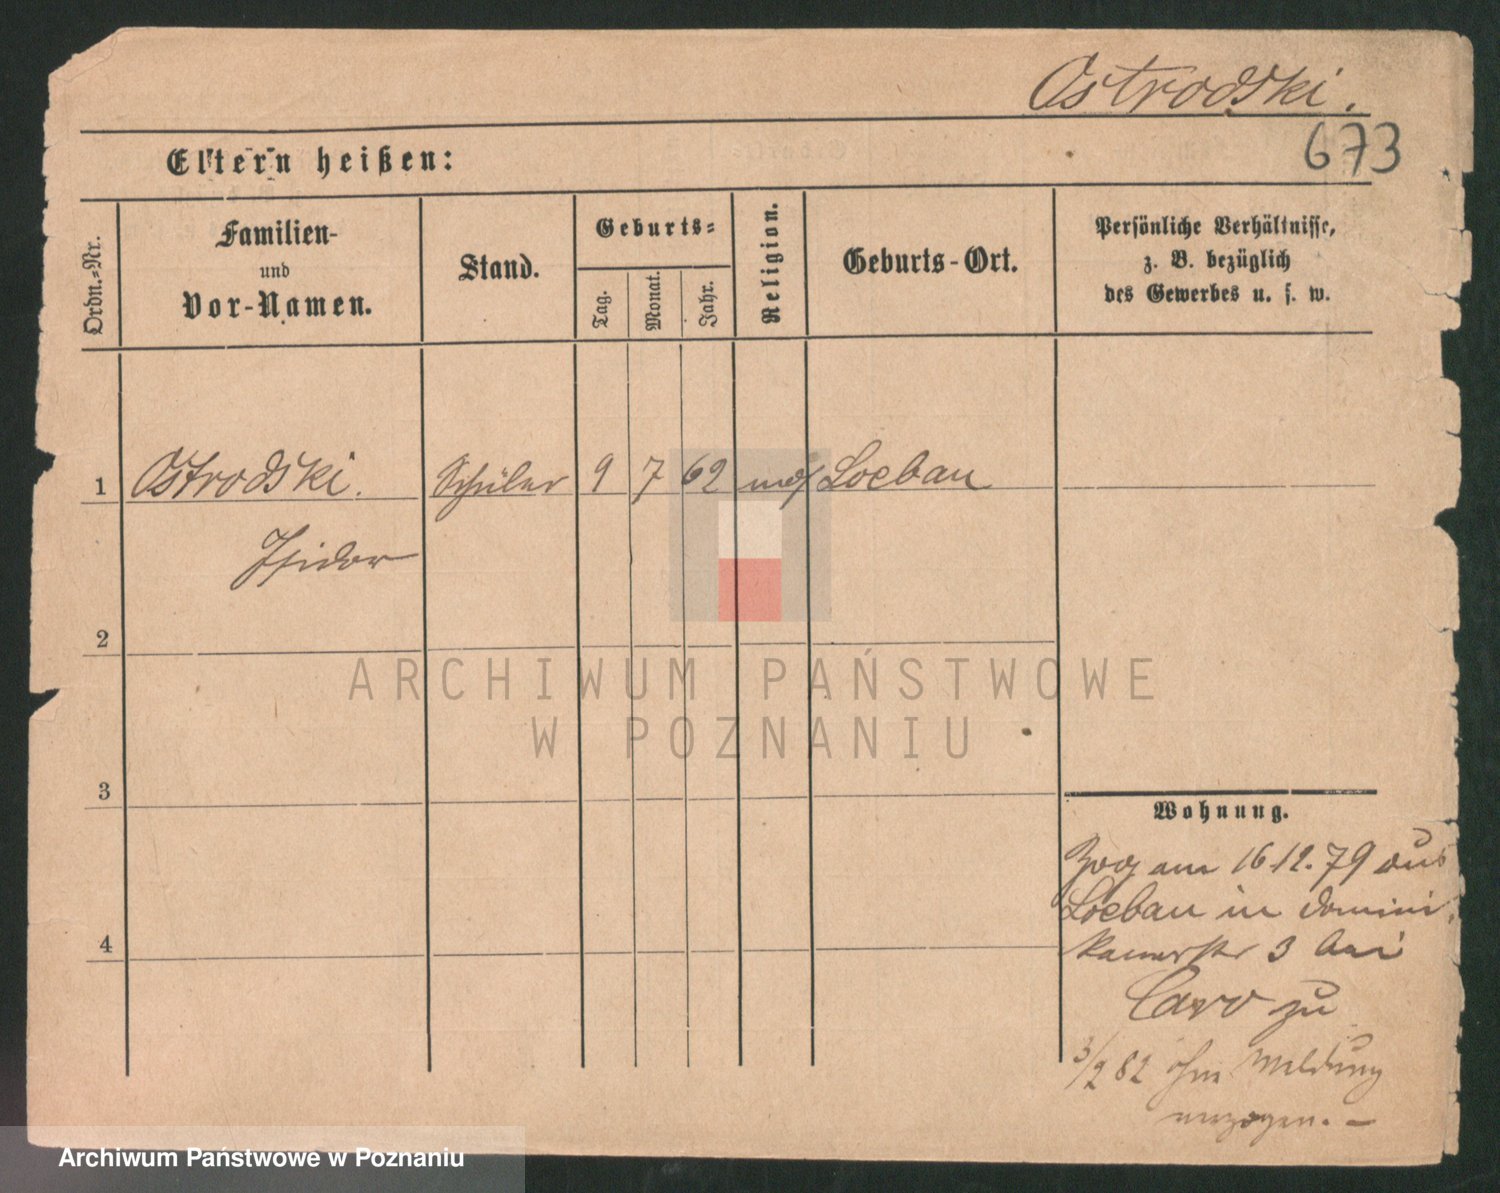 Ostrodski.
673
Eltern heißen:
Ordn.-Nr.
Familien-
und
Vor-Namen.
Stand.
Geburts-
Tag.
Monat.
Jahr.
Religion.
Geburts-Ort.
Persönliche Verhältnisse,
z. B. bezüglich
des Gewerbes u. s. w.
1 Ostrodski. Schüler 9 7 62 mos Loebau
Isidor
2
3
4
Wohnung.
Zog am 16 12. 79 aus
Loebau in Domini-
kanerstr 3 bei
Caro zu
3/2 82 ohne Meldung
verzogen. –
ARCHIWUM PAŃSTWOWE
W POZNANIU
Archiwum Państwowe w Poznaniu